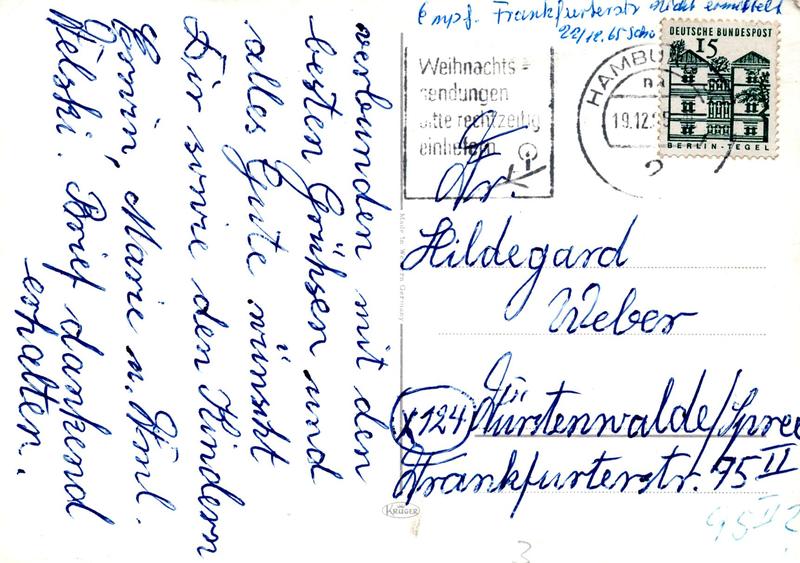 verbunden mit den
besten Grüßen und
alles Gute wünscht
Dir sowie den Kindern
Erwin, Marie u. Fml.
Welski. Brief dankend
erhalten.
Empf. Frankfurterstr nicht ermittelt
22/12.65 Scho
Weihnachts=
sendungen
bitte rechtzeitig
einliefern
HAMBU
19.12.65
DEUTSCHE BUNDESPOST
15
BERLIN-TEGEL
Fr.
Hildegard
Weber
X124 Fürstenwalde/Spree
Frankfurterstr. 95 II
95 II
Made in Western Germany
KRÜGER
3